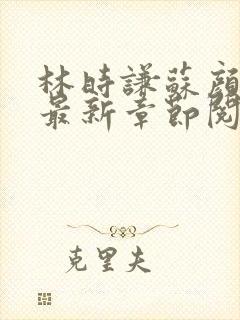 林時謙蘇顔
最新章節閱
克里夫